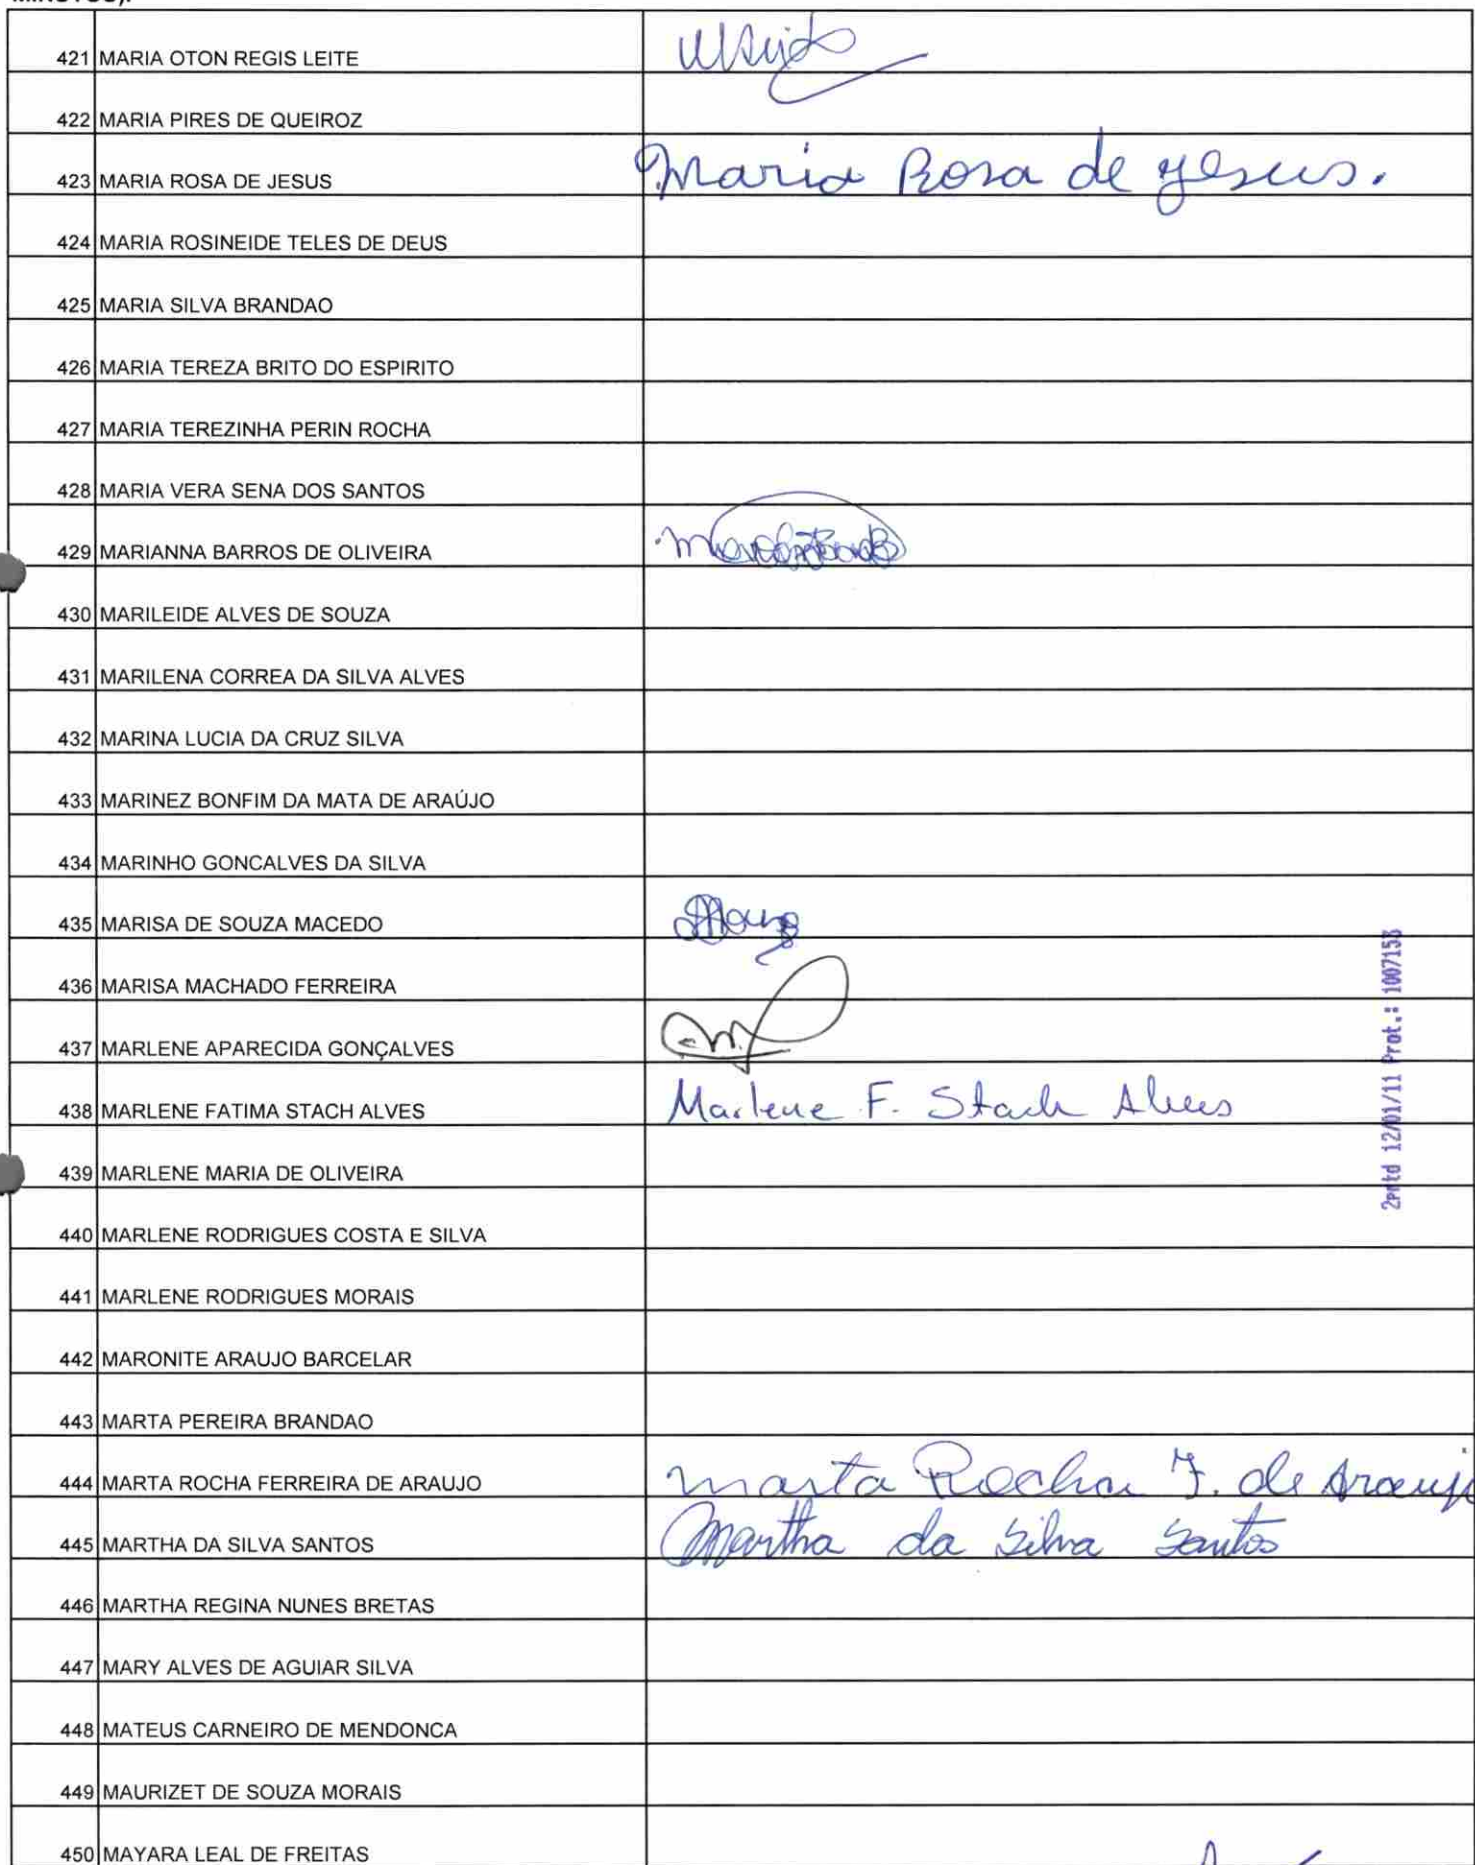 421 MARIA OTON REGIS LEITE
422 MARIA PIRES DE QUEIROZ
423 MARIA ROSA DE JESUS Maria Rosa de Jesus.
424 MARIA ROSINEIDE TELES DE DEUS
425 MARIA SILVA BRANDAO
426 MARIA TEREZA BRITO DO ESPIRITO
427 MARIA TEREZINHA PERIN ROCHA
428 MARIA VERA SENA DOS SANTOS
429 MARIANNA BARROS DE OLIVEIRA
430 MARILEIDE ALVES DE SOUZA
431 MARILENA CORREA DA SILVA ALVES
432 MARINA LUCIA DA CRUZ SILVA
433 MARINEZ BONFIM DA MATA DE ARAÚJO
434 MARINHO GONCALVES DA SILVA
435 MARISA DE SOUZA MACEDO
436 MARISA MACHADO FERREIRA
437 MARLENE APARECIDA GONÇALVES
438 MARLENE FATIMA STACH ALVES Marlene F. Stach Alves
439 MARLENE MARIA DE OLIVEIRA
440 MARLENE RODRIGUES COSTA E SILVA
441 MARLENE RODRIGUES MORAIS
442 MARONITE ARAUJO BARCELAR
443 MARTA PEREIRA BRANDAO
444 MARTA ROCHA FERREIRA DE ARAUJO Marta Rocha F. de Arauj
445 MARTHA DA SILVA SANTOS Martha da Silva Santos
446 MARTHA REGINA NUNES BRETAS
447 MARY ALVES DE AGUIAR SILVA
448 MATEUS CARNEIRO DE MENDONCA
449 MAURIZET DE SOUZA MORAIS
450 MAYARA LEAL DE FREITAS
12/01/11 Prot.: 1007153